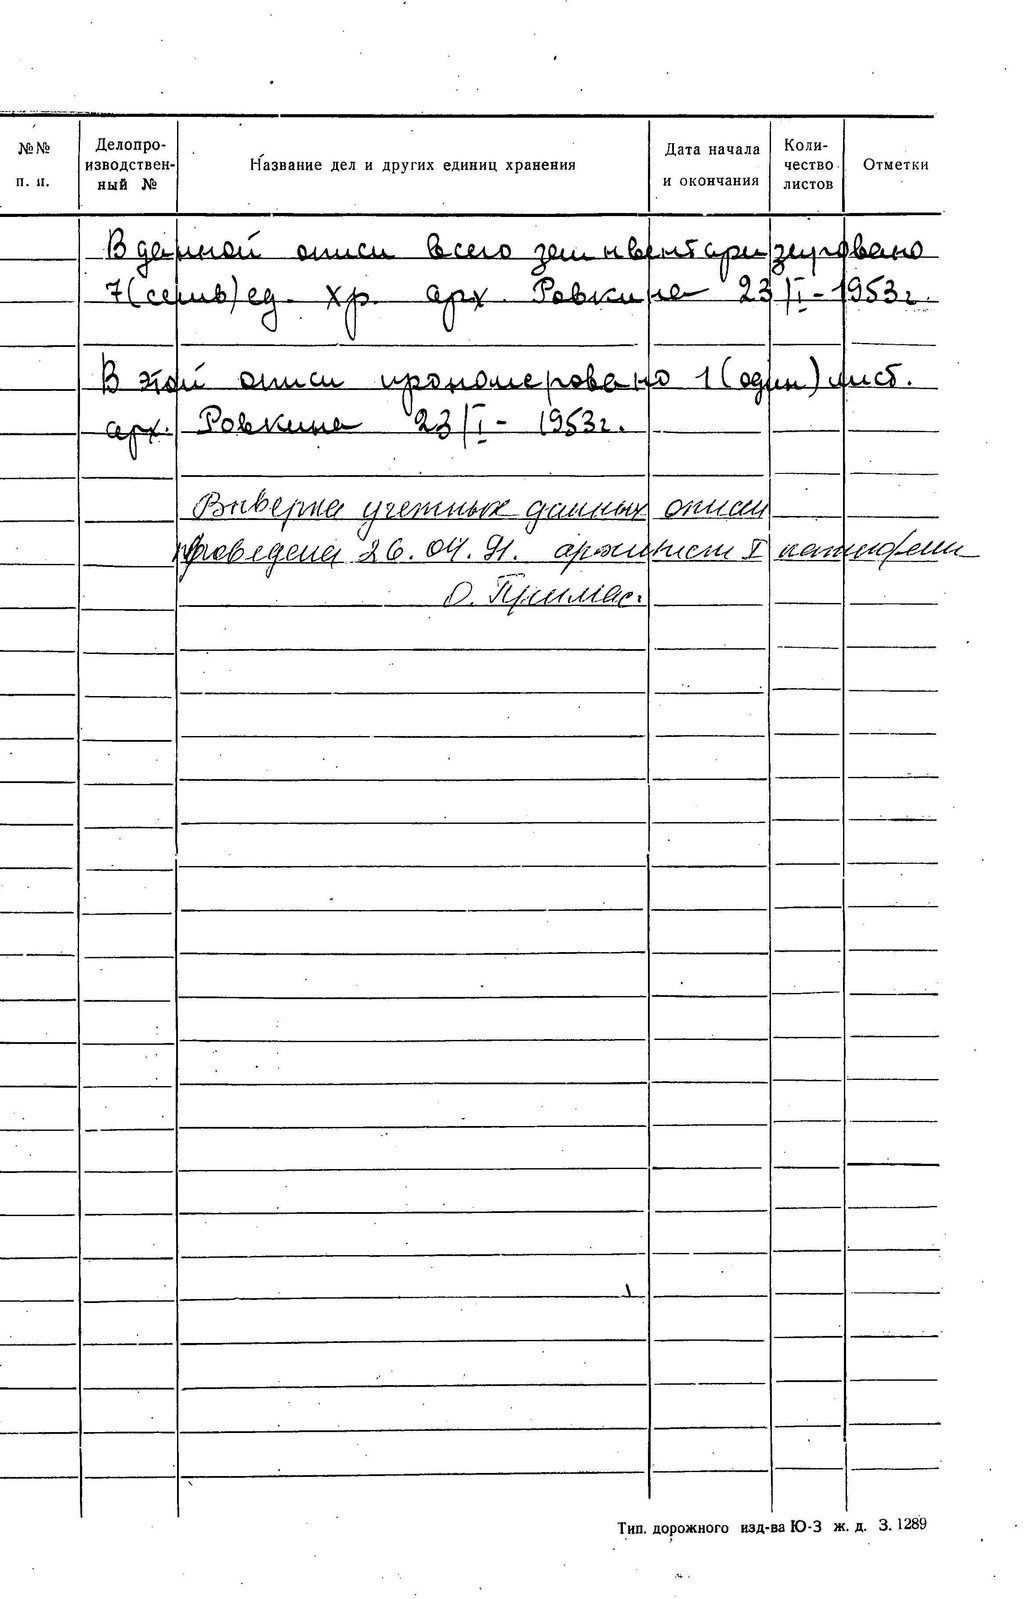 №№ п. п.
Делопро-
изводствен-
ный №
Название дел и других единиц хранения
Дата начала
и окончания
Коли-
чество
листов
Отметки
В данной описи всего заинвентаризировано
7 (семь) ед. хр. арх. Ровкина 23/I - 1953 г.
В этой описи прономеровано 1 (один) лист.
арх. Ровкина 23/I - 1953 г.
Выверка учетных данных описи
проведена 26.04.91. архивист I категории
О. Примас.
Тип. дорожного изд-ва Ю-З ж. д. З. 1289